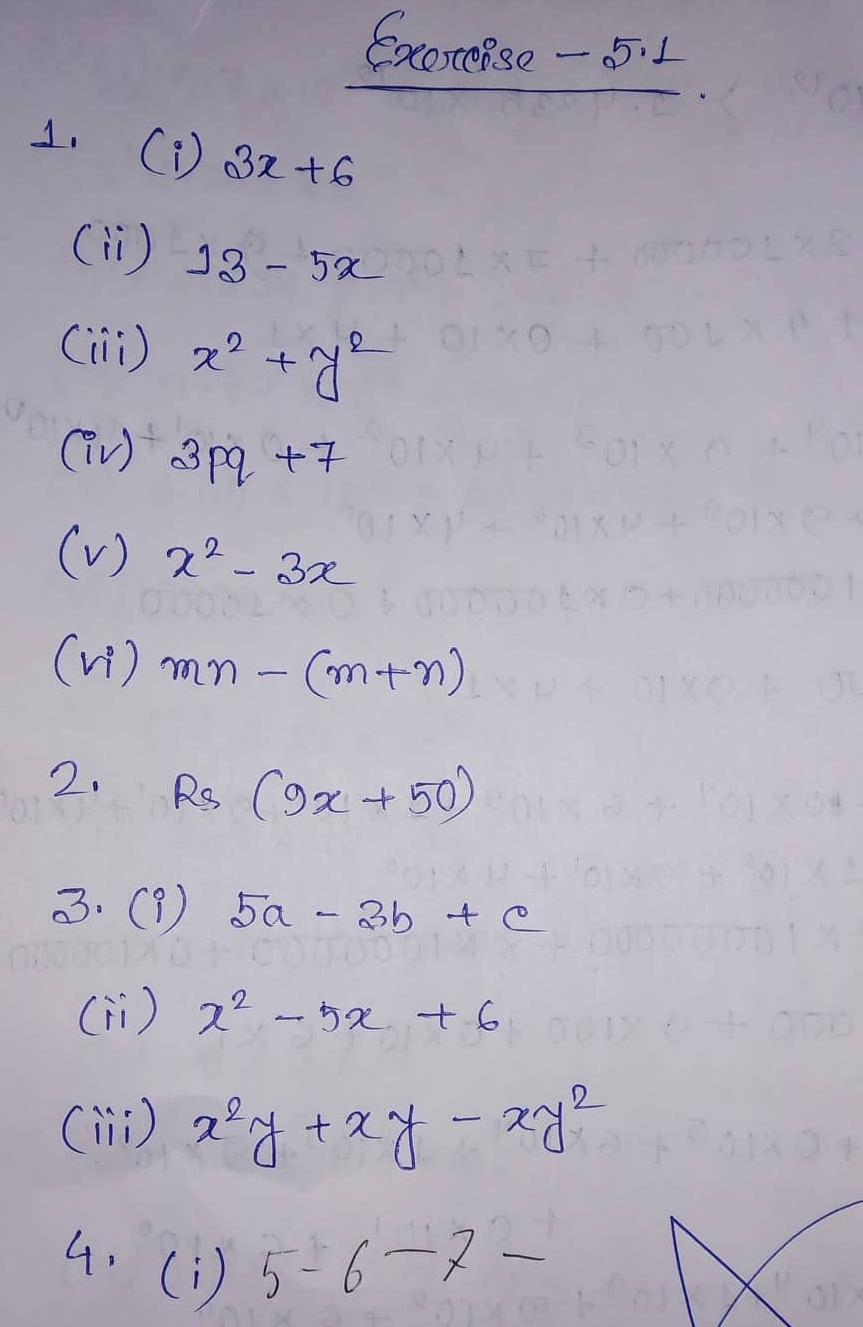 Exercise - 5.1
1. (i) 3x + 6
(ii) 13 - 5x
(iii) x² + y²
(iv) 3pq + 7
(v) x² - 3x
(vi) mn - (m+n)
2. Rs (9x + 50)
3. (i) 5a - 3b + c
(ii) x² - 5x + 6
(iii) x²y + xy - xy²
4. (i) 5 - 6 - 7 -